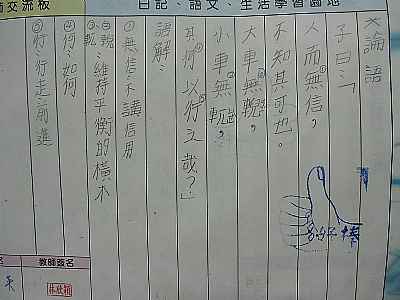 日記、語文、生活學習園地
交流板
論語
子曰：「
人而無①信，
不知其可也。
大車無輗②，
小車無軏③，
其何④以行⑤之哉？」
語解：
①無信：不講信用
②輗③軏：維持平衡的橫木
④何：如何
⑤行：行走前進
好棒
教師簽名